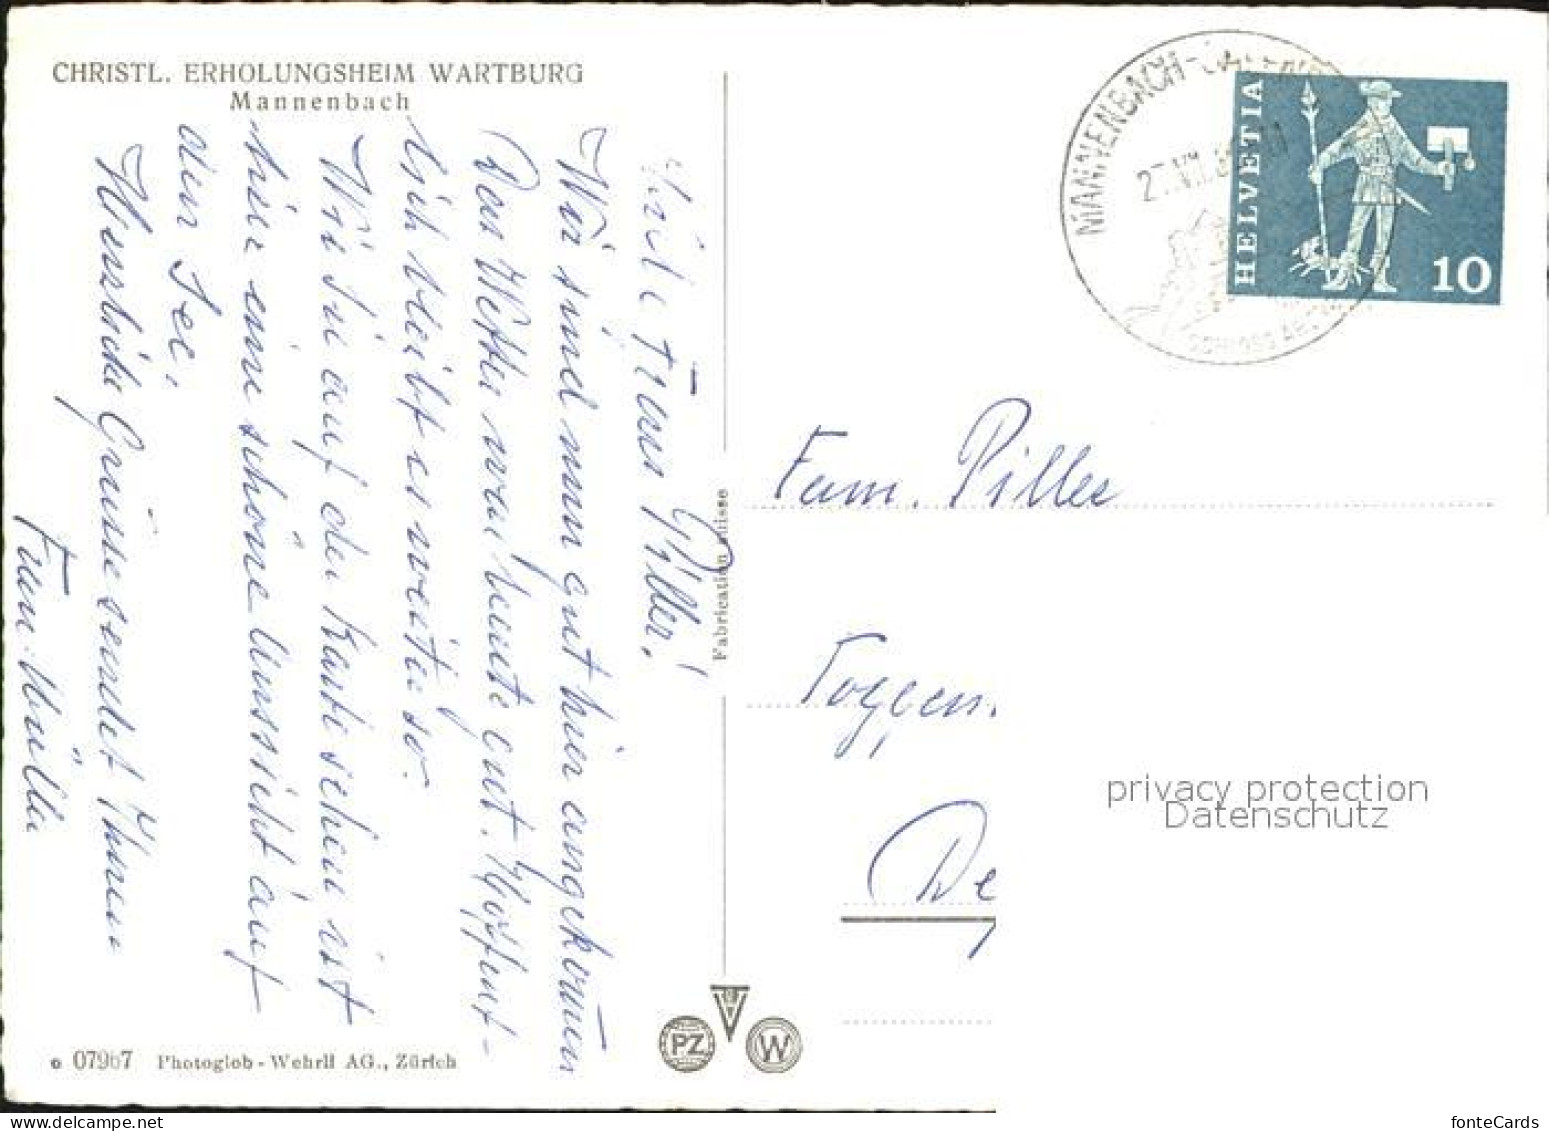 CHRISTL. ERHOLUNGSHEIM WARTBURG
Mannenbach
Frau Piller!
Wir sind nun gut hier angekommen
Das Wetter war heute gut. Hoffent-
lich bleibt es weiter so.
Wie Sie auf der Karte sehen ist
hier eine schöne Aussicht auf
den See.
Herzliche Grüsse sendet Ihnen
Fam. Müller
Fabrication suisse
07967 Photoglob-Wehrli AG., Zürich
PZ W
MANNENBACH-
27.VII.
SCHLOSS
HELVETIA
10
Fam. Piller
Toggen
De
privacy protection
Datenschutz
fonteCards